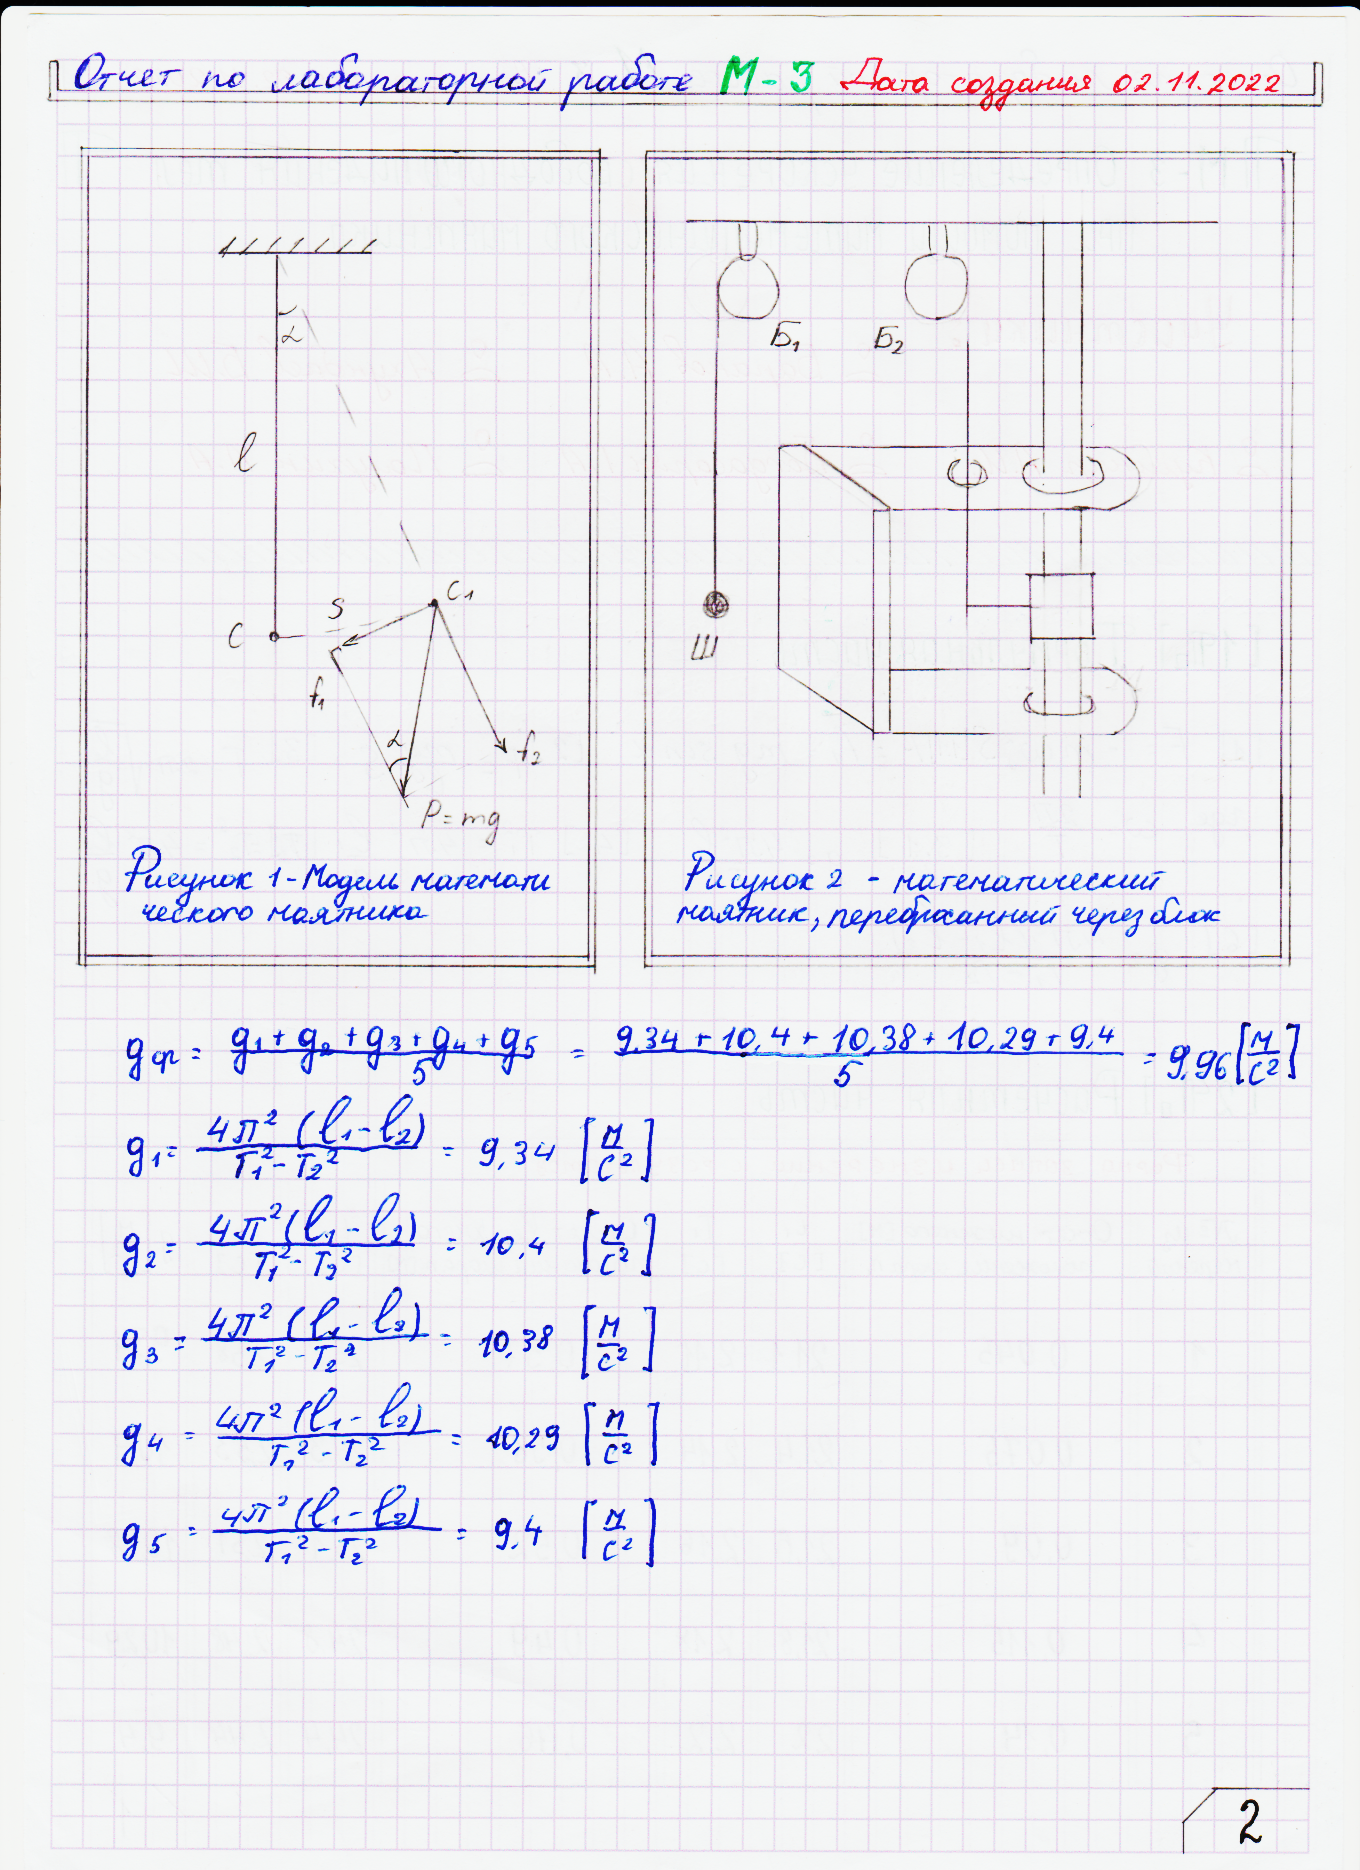 Отчет по лабораторной работе М-3 Дата создания 02.11.2022
α
l
C
S
C₁
f₁
α
f₂
P=mg
Рисунок 1-Модель математи
ческого маятника
Б₁
Б₂
Ш
Рисунок 2 - математический
маятник, переброшенный через блок
gср = (g₁ + g₂ + g₃ + g₄ + g₅)/5 = (9,34 + 10,4 + 10,38 + 10,29 + 9,4)/5 = 9,96 [м/с²]
g₁ = 4π² (l₁ - l₂)/(T₁² - T₂²) = 9,34 [м/с²]
g₂ = 4π² (l₁ - l₂)/(T₁² - T₂²) = 10,4 [м/с²]
g₃ = 4π² (l₁ - l₂)/(T₁² - T₂²) = 10,38 [м/с²]
g₄ = 4π² (l₁ - l₂)/(T₁² - T₂²) = 10,29 [м/с²]
g₅ = 4π² (l₁ - l₂)/(T₁² - T₂²) = 9,4 [м/с²]
2